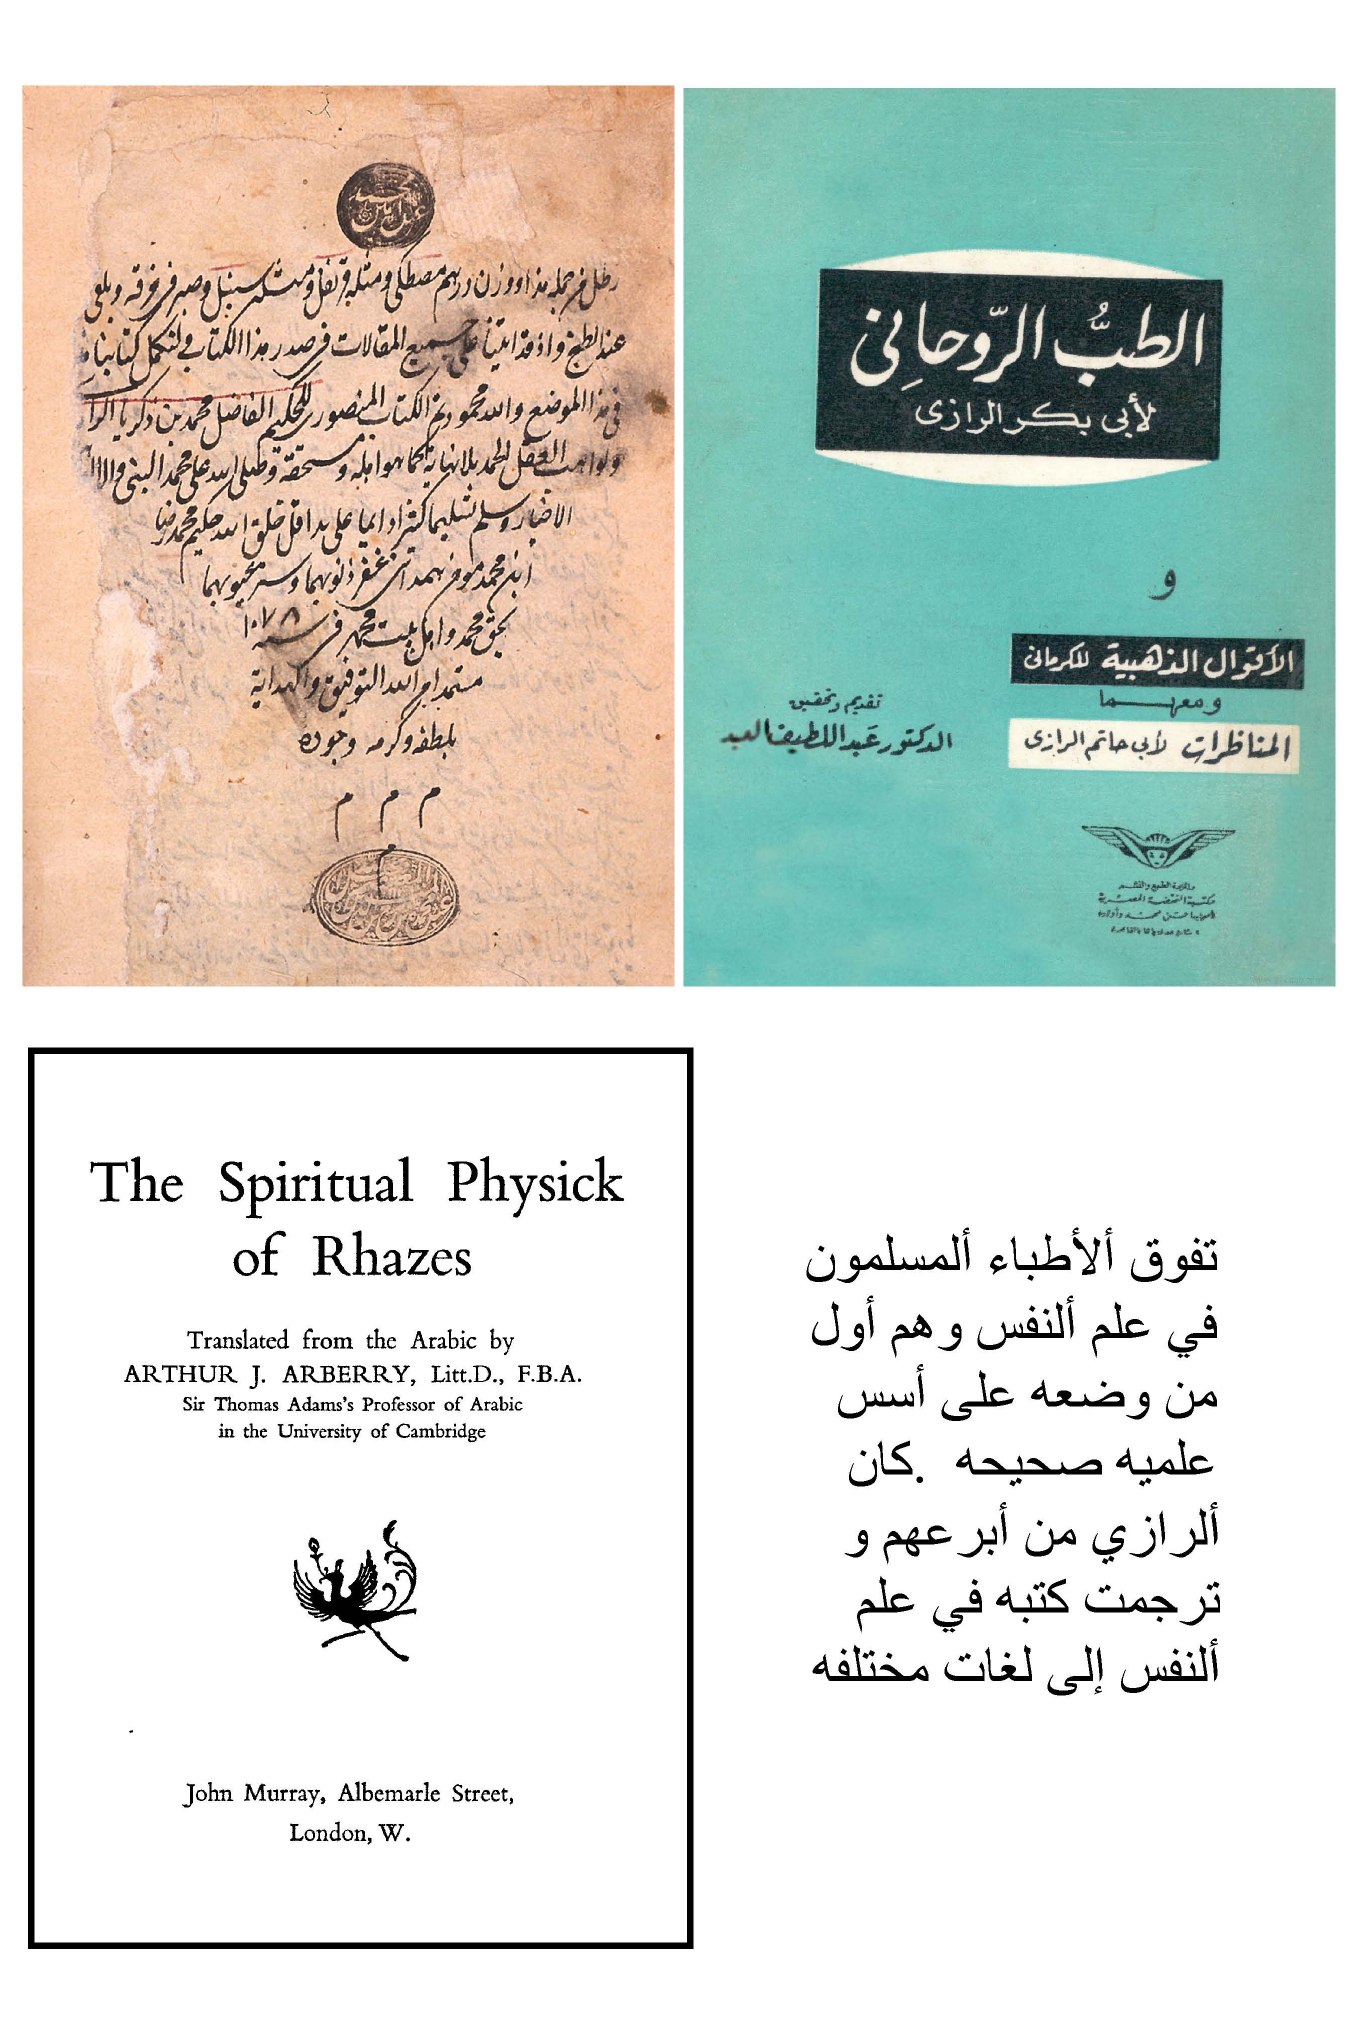 رطل من جملة هذا ووزن درهم مصطكى ومثله قرنفل ومثله سنبل وصير في خرقة ويلقى
عند الطبخ واذ قد اتينا على جميع المقالات في صدر هذا الكتاب فلنكمل كتابنا
في هذا الموضع والله محمود تم الكتاب المنصوري للحكيم الفاضل محمد بن زكريا
ولواهب العقل الحمد بلا نهاية كما هو اهله ومستحقه وصلى الله على محمد النبي
الاخيار وسلم تسليما كثيرا دايما على يد اقل خلق الله حكيم محمد رضا
ابن محمد مومن همدانى غفر ذنوبهما وستر عيوبهما
بحق محمد واهل بيت محمد في سنه ١٠٧٨
مستمدا من الله التوفيق والهداية
بلطفه وكرمه وجوده
م م م
الطبُّ الرّوحاني
لأبى بكر الرازى
و
الأقوال الذهبية للكرمانى
ومعهما
المناظرات لأبى حاتم الرازى
تقديم وتحقيق
الدكتور عبد اللطيف العبد
مكتبة النهضة المصرية
The Spiritual Physick
of Rhazes
Translated from the Arabic by
ARTHUR J. ARBERRY, Litt.D., F.B.A.
Sir Thomas Adams's Professor of Arabic
in the University of Cambridge
John Murray, Albemarle Street,
London, W.
تفوق ألأطباء ألمسلمون
في علم ألنفس و هم أول
من وضعه على أسس
علميه صحيحه .كان
ألرازي من أبرعهم و
ترجمت كتبه في علم
ألنفس إلى لغات مختلفه